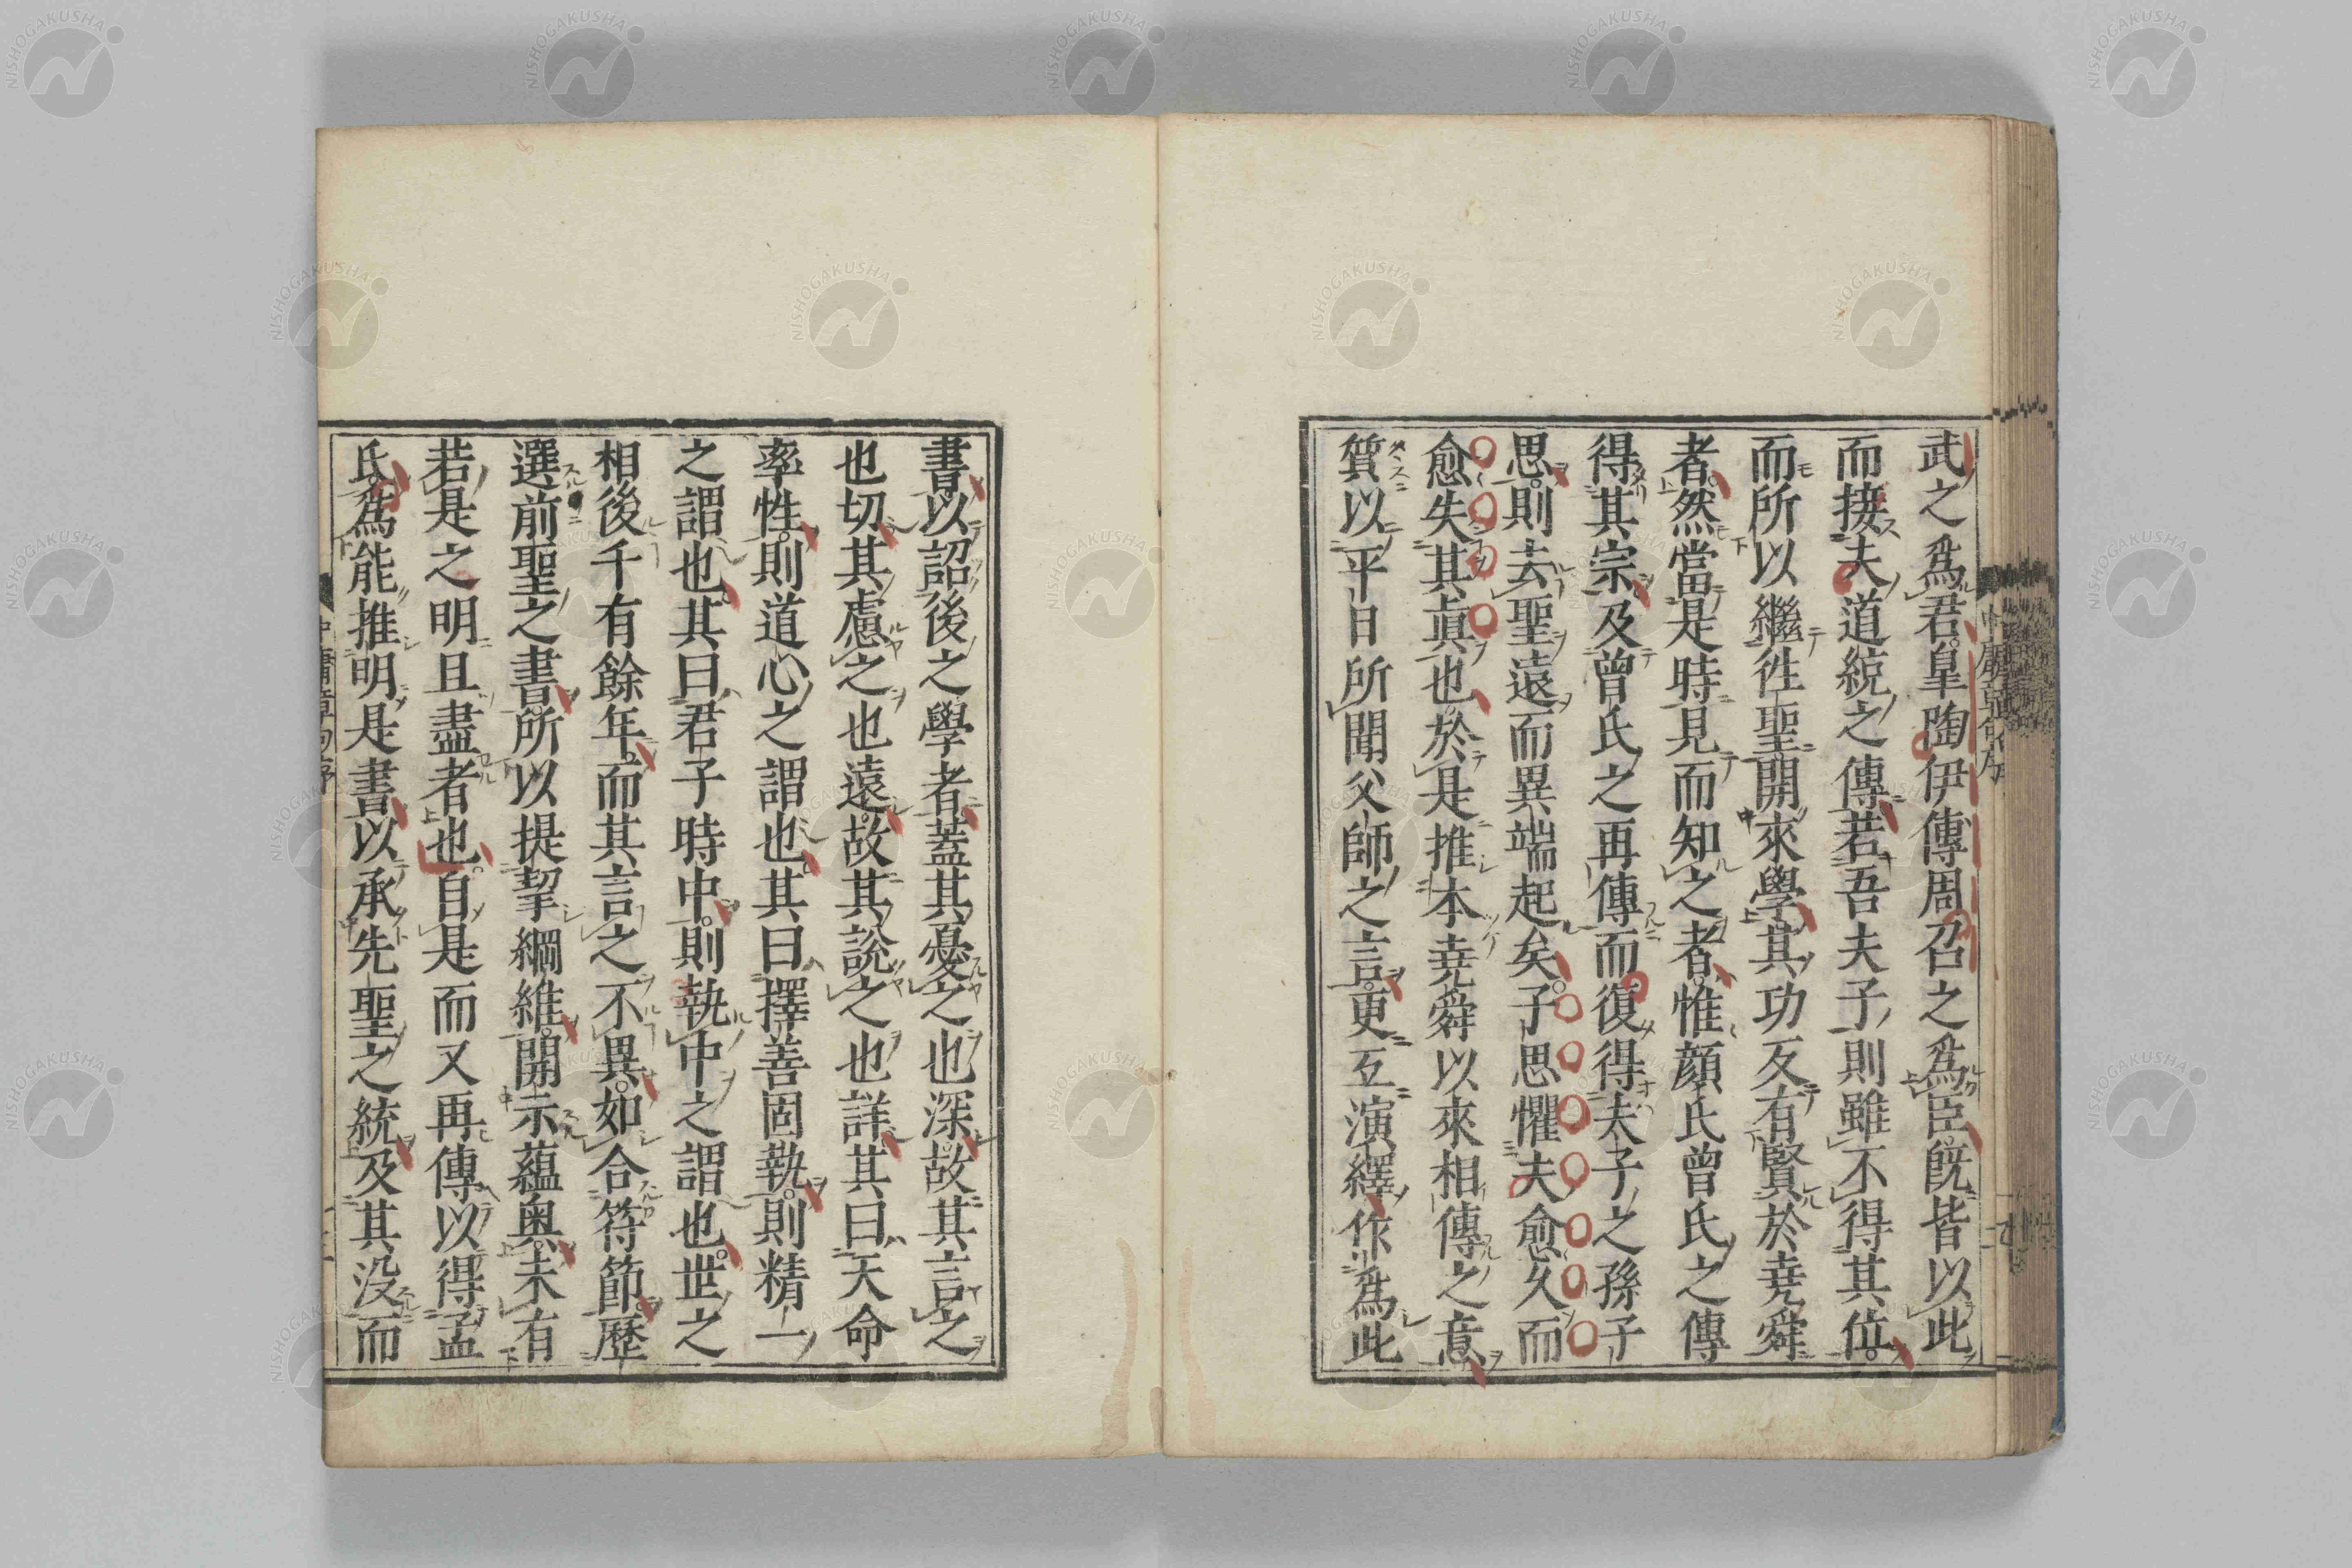 武之爲君皐陶伊傅周召之爲臣旣皆以此
而接夫道統之傳若吾夫子則雖不得其位
而所以繼徃聖開來學其功反有賢於堯舜
者然當是時見而知之者惟顔氏曾氏之傳
得其宗及曾氏之再傳而復得夫子之孫子
思則去聖遠而異端起矣子思懼夫愈久而
愈失其眞也於是推本堯舜以來相傳之意
質以平日所聞父師之言更互演繹作爲此
書以詔後之學者蓋其憂之也深故其言之
也切其慮之也遠故其說之也詳其曰天命
率性則道心之謂也其曰擇善固執則精一
之謂也其曰君子時中則執中之謂也世之
相後千有餘年而其言之不異如合符節歷
選前聖之書所以提挈綱維開示蘊奥未有
若是之明且盡者也自是而又再傳以得孟
氏爲能推明是書以承先聖之統及其没而
中庸章句序
NISHOGAKUSHA